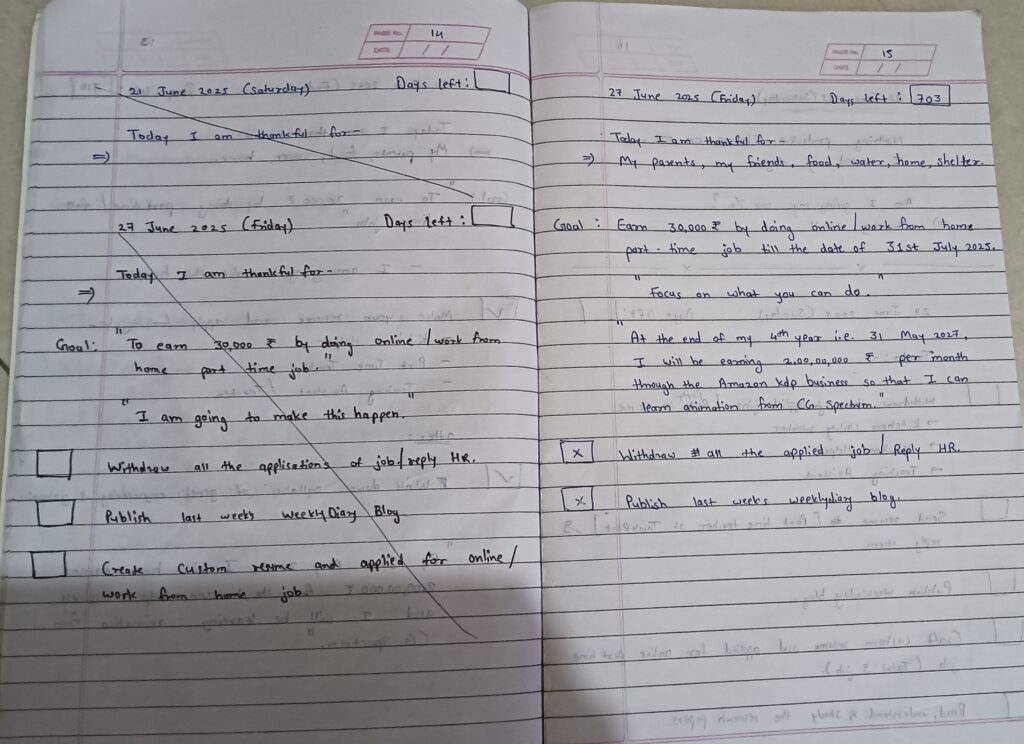 PAGE NO. 14
DATE / /
21 June 2025 (Saturday) Days left:
Today I am thankful for-
⇒
27 June 2025 (Friday) Days left:
Today I am thankful for-
⇒
Goal: "To earn 30,000 ₹ by doing online/work from
home part time job."
"I am going to make this happen."
Withdraw all the applications of job/reply HR.
Publish last week's Weekly Diary Blog
Create custom resume and applied for online/
work from home job.
PAGE NO. 15
DATE / /
27 June 2025 (Friday) Days left: 703
Today I am thankful for-
⇒ My parents, my friends, food, water, home, shelter.
Goal: Earn 30,000 ₹ by doing online/work from home
part-time job till the date of 31st July 2025.
"Focus on what you can do."
"At the end of my 4th year i.e. 31 May 2027,
I will be earning 2,00,00,000 ₹ per month
through the Amazon kdp business so that I can
learn animation from CG Spectrum."
x Withdraw all the applied job/Reply HR.
x Publish last week's weeklydiary blog.